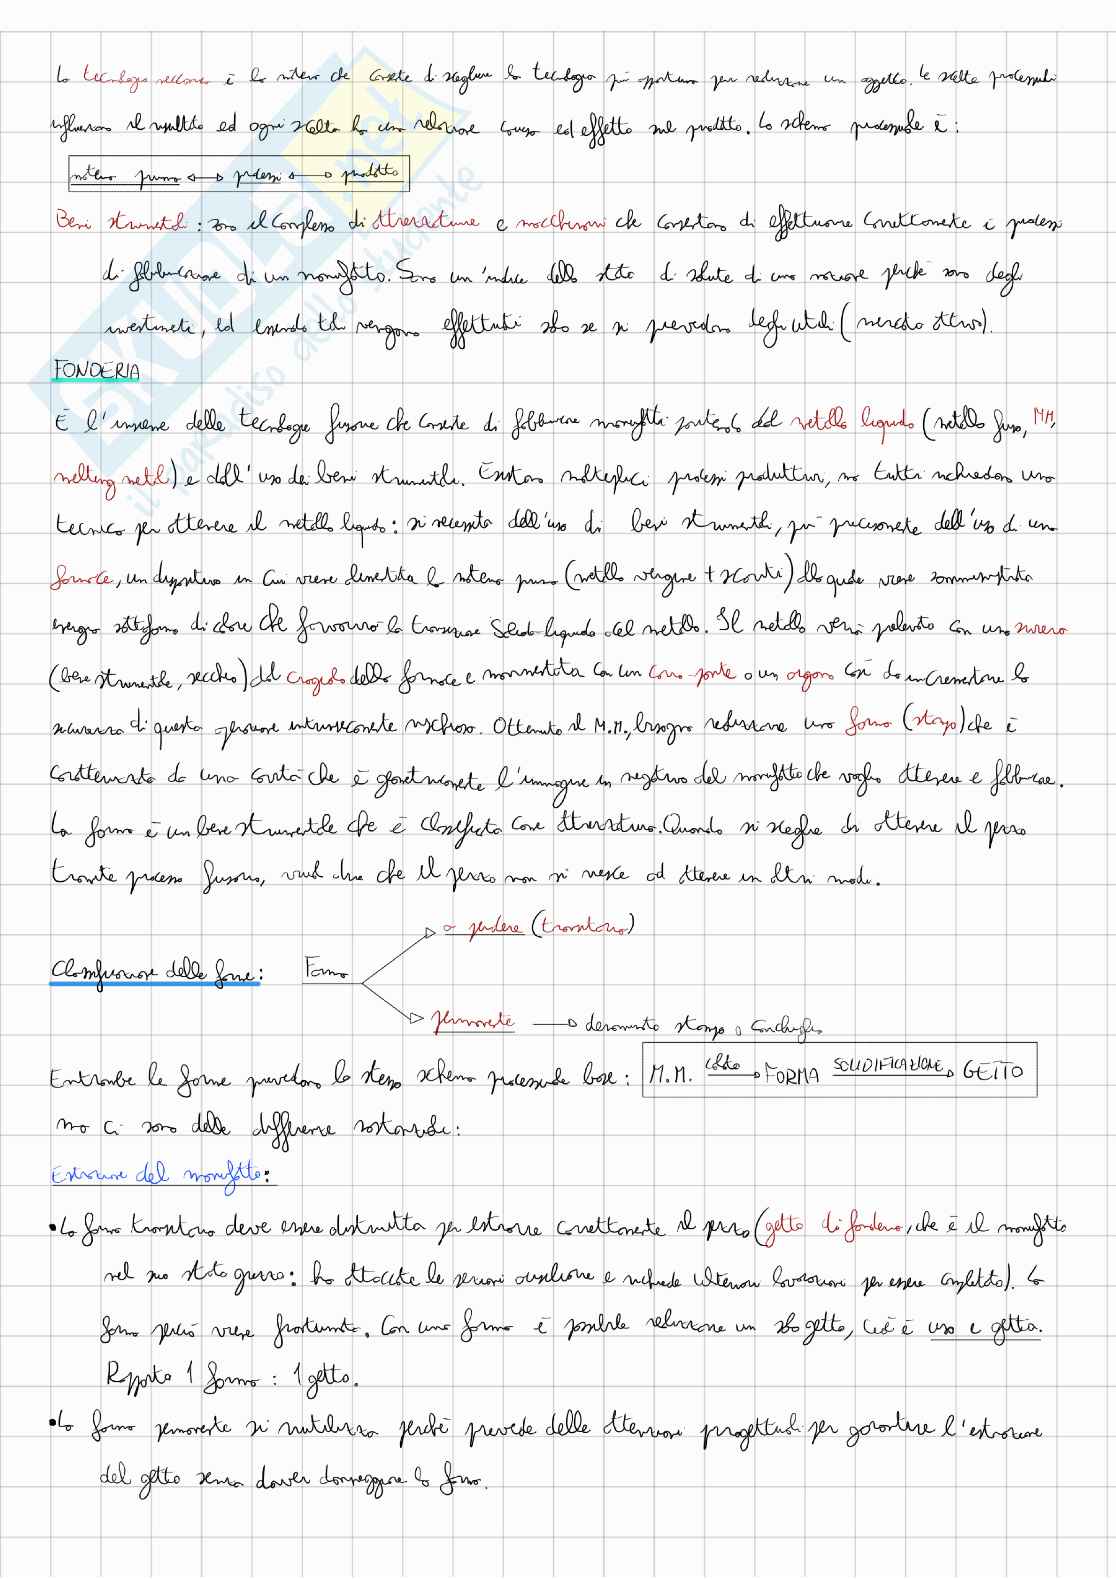 La tecnologia meccanica è la materia che consente di scegliere la tecnologia più opportuna per realizzare un oggetto. Le scelte processuali
influenzano il risultato ed ogni scelta ha una relazione causa ed effetto sul prodotto. Lo schema processuale è:
materia prima ↔ processi ↔ prodotto
Beni strumentali: sono il complesso di attrezzature e macchinari che consentono di effettuare correttamente i processi
di fabbricazione di un manufatto. Sono un'indice dello stato di salute di una nazione perché sono degli
investimenti, ed essendo tali vengono effettuati solo se si prevedono degli utili (mercato attivo).
FONDERIA
È l'insieme delle tecnologie fusorie che consente di fabbricare manufatti partendo dal metallo liquido (metallo fuso, MM,
melting metal) e dall'uso dei beni strumentali. Esistono molteplici processi produttivi, ma tutti richiedono una
tecnica per ottenere il metallo liquido: si necessita dell'uso di beni strumentali, più precisamente dell'uso di una
fornace, un dispositivo in cui viene alimentata la materia prima (metallo vergine + scarti) alla quale viene somministrata
energia sottoforma di calore che favorirà la transizione solido-liquido del metallo. Il metallo verrà prelevato con una siviera
(bene strumentale, secchio) dal crogiolo della fornace e movimentata con un carro-ponte o un argano così da incrementare la
sicurezza di questa operazione intrinsecamente rischiosa. Ottenuto il M.M., bisogna realizzare una forma (stampo) che è
caratterizzata da una cavità che è geometricamente l'immagine in negativo del manufatto che voglio ottenere e fabbricare.
La forma è un bene strumentale che è classificata come attrezzatura. Quando si sceglie di ottenere il pezzo
tramite processo fusorio, vuol dire che il pezzo non si riesce ad ottenere in altri modi.
a perdere (transitoria)
Classificazione delle forme: Forma
permanente → denominata stampo o conchiglia
Entrambe le forme prevedono lo stesso schema processuale base: M.M. colata → FORMA SOLIDIFICAZIONE → GETTO
ma ci sono delle differenze sostanziali:
Estrazione del manufatto:
•La forma transitoria deve essere distrutta per estrarre correttamente il pezzo (getto di fonderia, che è il manufatto
nel suo stato grezzo: ha attaccate le sezioni ausiliarie e richiede ulteriori lavorazioni per essere completato). La
forma perciò viene frantumata. Con una forma è possibile realizzare un solo getto, cioè è usa e getta.
Rapporto 1 forma : 1 getto.
•La forma permanente si riutilizza perché prevede delle attenzioni progettuali per garantire l'estrazione
del getto senza dover danneggiare la forma.